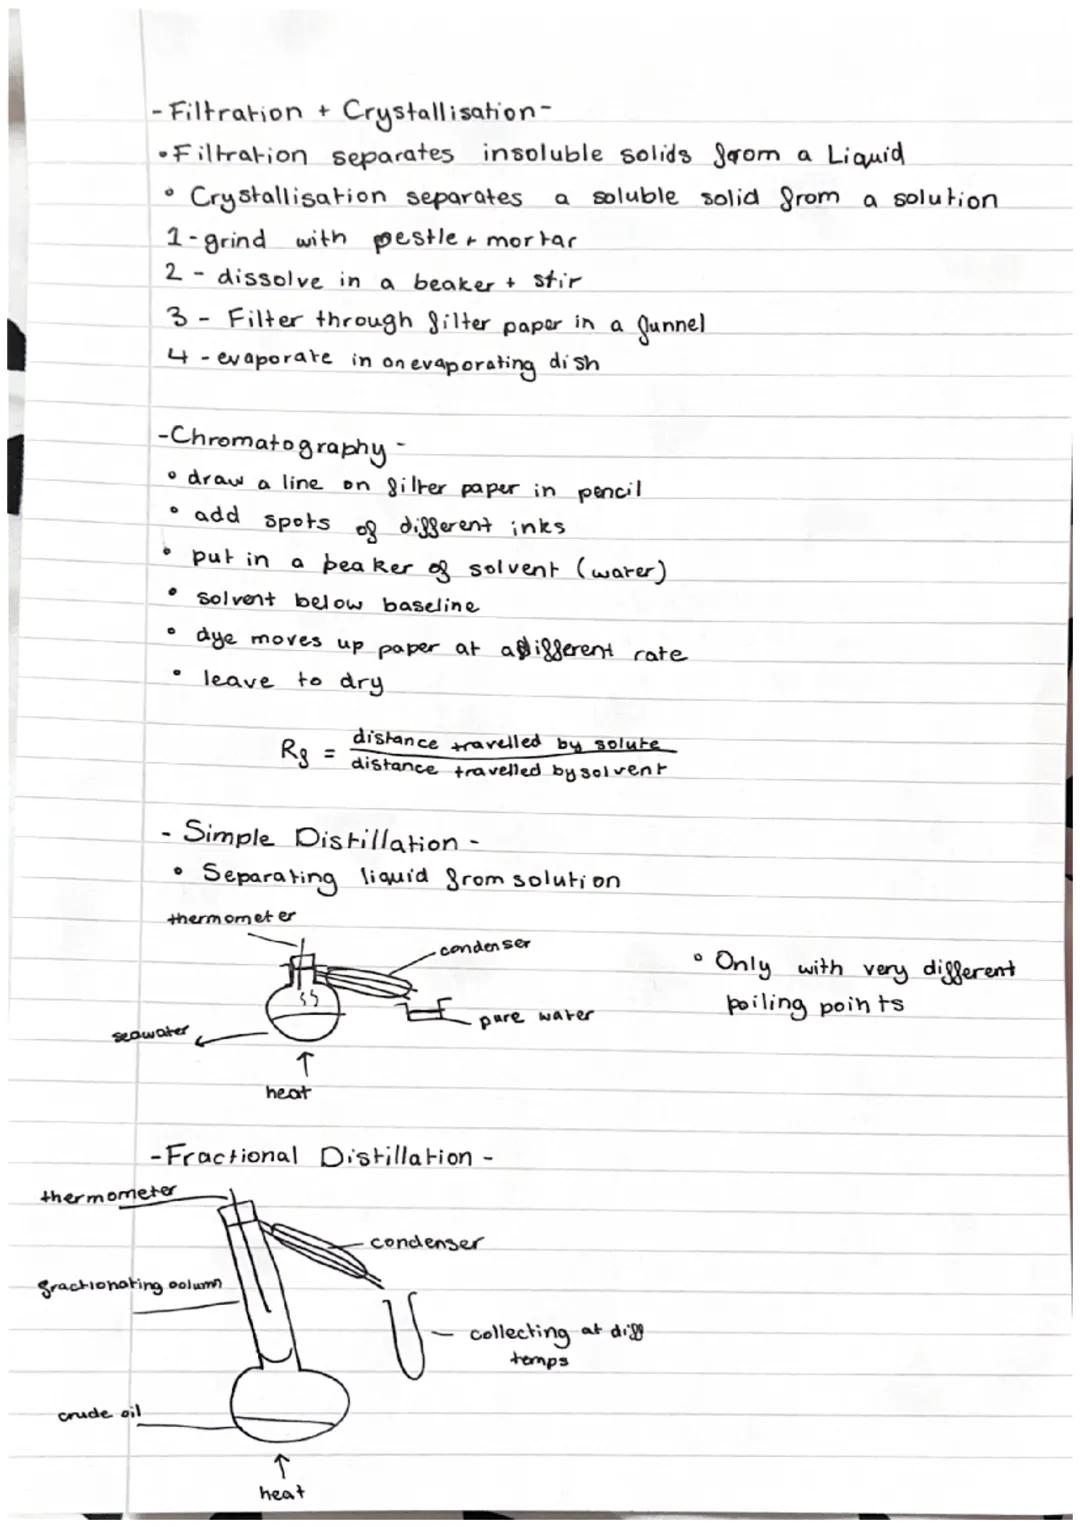 - Filtration + Crystallisation -
• Filtration separates insoluble solids from a Liquid
• Crystallisation separates a soluble solid from a solution
1 - grind with pestle + mortar
2 - dissolve in a beaker + stir
3 - Filter through filter paper in a funnel
4 - evaporate in an evaporating dish
- Chromatography -
• draw a line on filter paper in pencil
• add spots of different inks
• put in a beaker of solvent (water)
• solvent below baseline
• dye moves up paper at a different rate
• leave to dry
Rf = distance travelled by solute
distance travelled by solvent
- Simple Distillation -
• Separating liquid from solution
thermometer
condenser
• Only with very different
boiling points
pure water
seawater
heat
- Fractional Distillation -
thermometer
condenser
fractionating column
collecting at diff
temps
crude oil
heat